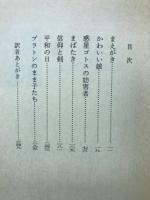 目次
まえがき
かわいい娘
惑星ゴトスの妨害者
まばたき
信仰と剣
平和の日
プラトンのまま子たち
訳者あとがき